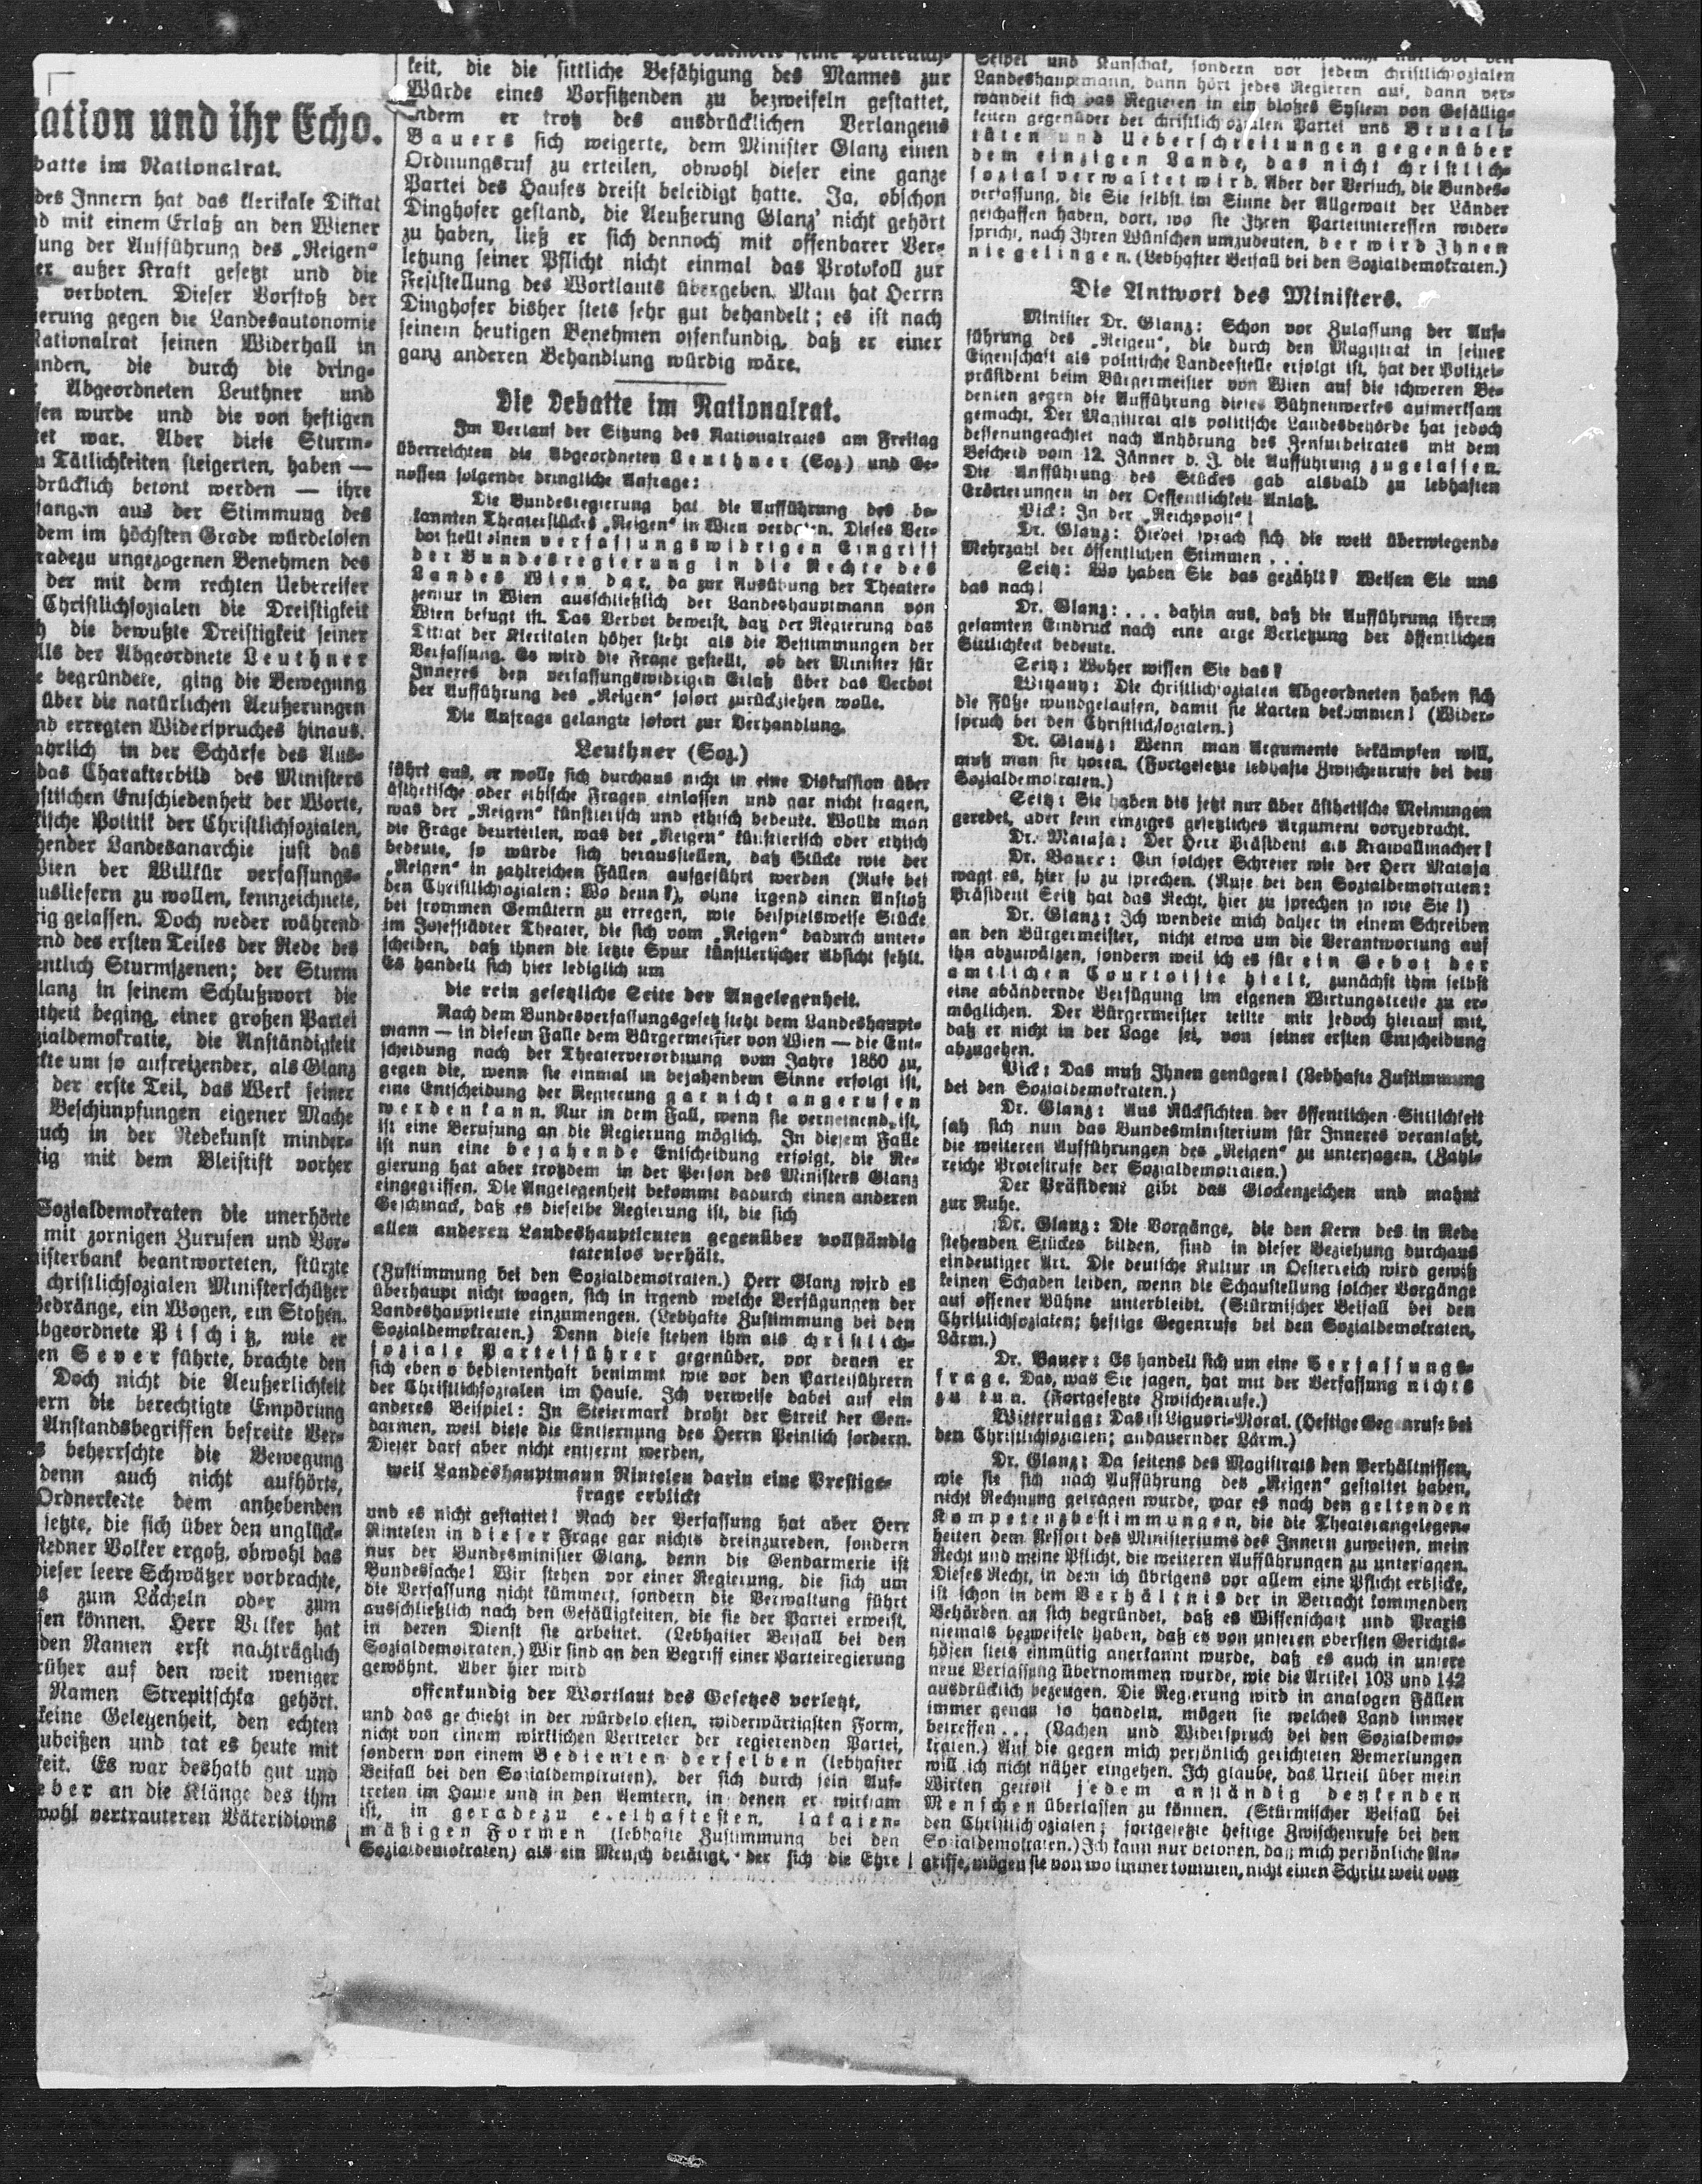 ation und ihr Echo.
batte im Nationalrat.
des Innern hat das klerikale Diktat
d mit einem Erlaß an den Wiener
ung der Aufführung des „Reigen“
er außer Kraft gesetzt und die
verboten. Dieser Vorstoß der
ierung gegen die Landesautonomie
Nationalrat seinen Widerhall in
unden, die durch die dring-
Abgeordneten Leuthner und
sen wurde und die von heftigen
tet war. Aber diese Sturm-
n Tätlichkeiten steigerten, haben —
drücklich betont werden — ihre
fangen aus der Stimmung des
dem im höchsten Grade würdelosen
radezu ungezogenen Benehmen des
der mit dem rechten Uebereifer
Christlichsozialen die Dreistigkeit
h die bewußte Dreistigkeit seiner
Als der Abgeordnete Leuthner
e begründete, ging die Bewegung
über die natürlichen Aeußerungen
nd erregten Widerspruches hinaus.
ahrlich in der Schärfe des Aus-
das Charakterbild des Ministers
stischen Entschiedenheit der Worte,
kische Politik der Christlichsozialen,
hender Landesanarchie just das
Wien der Willkür verfassungs-
usliefern zu wollen, kennzeichnete,
rig gelassen. Doch weder während
end des ersten Teiles der Rede des
entlich Sturmszenen; der Sturm
lanz in seinem Schlußwort die
theit beging, einer großen Partei
zialdemokratie, die Anständigkeit
kte um so aufreizender, als Glanz
der erste Teil, das Werk seiner
Beschimpfungen eigener Mache
uch in der Redekunst minder-
tig mit dem Bleistift vorher
Sozialdemokraten die unerhörte
mit zornigen Zurufen und Vor-
nisterbank beantworteten, stürzte
christlichsozialen Ministerschützer
Gedränge, ein Wogen, ein Stoßen.
Abgeordnete Pischitz, wie er
en Sever führte, brachte den
Doch nicht die Aeußerlichkeit
ern die berechtigte Empörung
Anstandsbegriffen befreite Ver-
s beherrschte die Bewegung
denn auch nicht aufhörte,
Ordnerkette dem anhebenden
setzte, die sich über den unglück-
Redner Volker ergoß, obwohl das
dieser leere Schwätzer vorbrachte,
s zum Lächeln oder zum
sen können. Herr Volker hat
den Namen erst nachträglich
rüher auf den weit weniger
Namen Strepitschka gehört.
keine Gelegenheit, den echten
zuheißen und tat es heute mit
keit. Es war deshalb gut und
eber an die Klänge des ihm
wohl vertrauteren Väteridioms
keit, die die sittliche Befähigung des Mannes zur
Würde eines Vorsitzenden zu bezweifeln gestattet,
indem er trotz des ausdrücklichen Verlangens
Bauers sich weigerte, dem Minister Glanz einen
Ordnungsruf zu erteilen, obwohl dieser eine ganze
Partei des Hauses dreist beleidigt hatte. Ja, obschon
Dinghofer gestand, die Aeußerung Glanz' nicht gehört
zu haben, ließ er sich dennoch mit offenbarer Ver-
letzung seiner Pflicht nicht einmal das Protokoll zur
Feststellung des Wortlauts übergeben. Man hat Herrn
Dinghofer bisher stets sehr gut behandelt; es ist nach
seinem heutigen Benehmen offenkundig, daß er einer
ganz anderen Behandlung würdig wäre.
Die Debatte im Nationalrat.
Im Verlauf der Sitzung des Nationalrates am Freitag
überreichten die Abgeordneten Leuthner (Soz.) und Ge-
nossen folgende dringliche Anfrage:
Die Bundesregierung hat die Aufführung des be-
kannten Theaterstückes „Reigen“ in Wien verboten. Dieses Ver-
bot stellt einen verfassungswidrigen Eingriff
der Bundesregierung in die Rechte des
Landes Wien dar, da zur Ausübung der Theater-
zensur in Wien ausschließlich der Landeshauptmann von
Wien befugt ist. Das Verbot beweist, daß der Regierung das
Diktat der Klerikalen höher steht als die Bestimmungen der
Verfassung. Es wird die Frage gestellt, ob der Minister für
Inneres den verfassungswidrigen Erlaß über das Verbot
der Aufführung des „Reigen“ sofort zurückziehen wolle.
Die Anfrage gelangte sofort zur Verhandlung.
Leuthner (Soz.)
führt aus, er wolle sich durchaus nicht in eine Diskussion über
ästhetische oder ethische Fragen einlassen und gar nicht fragen,
was der „Reigen“ künstlerisch und ethisch bedeute. Wollte man
die Frage beurteilen, was der „Reigen“ künstlerisch oder ethisch
bedeute, so würde sich herausstellen, daß Stücke wie der
„Reigen“ in zahlreichen Fällen aufgeführt werden (Rufe bei
den Christlichsozialen: Wo denn?), ohne irgend einen Anstoß
bei frommen Gemütern zu erregen, wie beispielsweise Stücke
im Josefstädter Theater, die sich vom „Reigen“ dadurch unter-
scheiden, daß ihnen die letzte Spur künstlerischer Absicht fehlt.
Es handelt sich hier lediglich um
die rein gesetzliche Seite der Angelegenheit.
Nach dem Bundesverfassungsgesetz steht dem Landeshaupt-
mann — in diesem Falle dem Bürgermeister von Wien — die Ent-
scheidung nach der Theaterverordnung vom Jahre 1850 zu,
gegen die, wenn sie einmal in bejahendem Sinne erfolgt ist,
eine Entscheidung der Regierung gar nicht angerufen
werden kann. Nur in dem Fall, wenn sie verneinend ist,
ist eine Berufung an die Regierung möglich. In diesem Falle
ist nun eine bejahende Entscheidung erfolgt, die Re-
gierung hat aber trotzdem in der Person des Ministers Glanz
eingegriffen. Die Angelegenheit bekommt dadurch einen anderen
Geschmack, daß es dieselbe Regierung ist, die sich
allen anderen Landeshauptleuten gegenüber vollständig
tatenlos verhält.
(Zustimmung bei den Sozialdemokraten.) Herr Glanz wird es
überhaupt nicht wagen, sich in irgend welche Verfügungen der
Landeshauptleute einzumengen. (Lebhafte Zustimmung bei den
Sozialdemokraten.) Denn diese stehen ihm als christlich-
soziale Parteiführer gegenüber, vor denen er
sich ebenso bedientenhaft benimmt wie vor den Parteiführern
der Christlichsozialen im Hause. Ich verweise dabei auf ein
anderes Beispiel: In Steiermark droht der Streik der Gen-
darmen, weil diese die Entfernung des Herrn Peinlich fordern.
Dieser darf aber nicht entfernt werden,
weil Landeshauptmann Rintelen darin eine Prestige-
frage erblickt
und es nicht gestattet! Nach der Verfassung hat aber Herr
Rintelen in dieser Frage gar nichts dreinzureden, sondern
nur der Bundesminister Glanz, denn die Gendarmerie ist
Bundessache! Wir stehen vor einer Regierung, die sich um
die Verfassung nicht kümmert, sondern die Verwaltung führt
ausschließlich nach den Gefälligkeiten, die sie der Partei erweist,
in deren Dienst sie arbeitet. (Lebhafter Beifall bei den
Sozialdemokraten.) Wir sind an den Begriff einer Parteiregierung
gewöhnt. Aber hier wird
offenkundig der Wortlaut des Gesetzes verletzt,
und das geschieht in der würdelosesten, widerwärtigsten Form,
nicht von einem wirklichen Vertreter der regierenden Partei,
sondern von einem Bedienten derselben (lebhafter
Beifall bei den Sozialdemokraten), der sich durch sein Auf-
treten im Hause und in den Aemtern, in denen er wirksam
ist, in geradezu ekelhaftesten, lakaien-
mäßigen Formen (lebhafte Zustimmung bei den
Sozialdemokraten) als ein Mensch betätigt, der sich die Ehre
Seipel und Kunschak, sondern vor jedem christlichsozialen
Landeshauptmann, dann hört jedes Regieren auf, dann ver-
wandelt sich das Regieren in ein bloßes System von Gefällig-
keiten gegenüber der christlichsozialen Partei und Brutali-
täten und Ueberschreitungen gegenüber
dem einzigen Lande, das nicht christlich-
sozial verwaltet wird. Aber der Versuch, die Bundes-
verfassung, die Sie selbst im Sinne der Allgewalt der Länder
geschaffen haben, dort, wo sie Ihren Parteiinteressen wider-
spricht, nach Ihren Wünschen umzudeuten, der wird Ihnen
nie gelingen. (Lebhafter Beifall bei den Sozialdemokraten.)
Die Antwort des Ministers.
Minister Dr. Glanz: Schon vor Zulassung der Auf-
führung des „Reigen“, die durch den Magistrat in seiner
Eigenschaft als politische Landesstelle erfolgt ist, hat der Polizei-
präsident beim Bürgermeister von Wien auf die schweren Be-
denken gegen die Aufführung dieses Bühnenwerkes aufmerksam
gemacht. Der Magistrat als politische Landesbehörde hat jedoch
dessenungeachtet nach Anhörung des Zensurbeirates mit dem
Bescheid vom 12. Jänner d. J. die Aufführung zugelassen.
Die Aufführung des Stückes gab alsbald zu lebhaften
Erörterungen in der Oeffentlichkeit Anlaß.
Pick: In der „Reichspost“!
Dr. Glanz: Hiebei sprach sich die weit überwiegende
Mehrzahl der öffentlichen Stimmen . . .
Seitz: Wo haben Sie das gezählt? Weisen Sie uns
das nach!
Dr. Glanz: . . . dahin aus, daß die Aufführung ihrem
gesamten Eindruck nach eine arge Verletzung der öffentlichen
Sittlichkeit bedeute.
Seitz: Woher wissen Sie das?
Witzany: Die christlichsozialen Abgeordneten haben sich
die Füße wundgelaufen, damit sie Karten bekommen! (Wider-
spruch bei den Christlichsozialen.)
Dr. Glanz: Wenn man Argumente bekämpfen will,
muß man sie hören. (Fortgesetzte lebhafte Zwischenrufe bei den
Sozialdemokraten.)
Seitz: Sie haben bis jetzt nur über ästhetische Meinungen
geredet, aber kein einziges gesetzliches Argument vorgebracht.
Dr. Mataja: Der Herr Präsident als Krawallmacher!
Dr. Bauer: Ein solcher Schreier wie der Herr Mataja
wagt es, hier so zu sprechen. (Rufe bei den Sozialdemokraten:
Präsident Seitz hat das Recht, hier zu sprechen so wie Sie!)
Dr. Glanz: Ich wendete mich daher in einem Schreiben
an den Bürgermeister, nicht etwa um die Verantwortung auf
ihn abzuwälzen, sondern weil ich es für ein Gebot der
amtlichen Courtoisie hielt, zunächst ihm selbst
eine abändernde Verfügung im eigenen Wirkungskreise zu er-
möglichen. Der Bürgermeister teilte mir jedoch hierauf mit,
daß er nicht in der Lage sei, von seiner ersten Entscheidung
abzugehen.
Pick: Das muß Ihnen genügen! (Lebhafte Zustimmung
bei den Sozialdemokraten.)
Dr. Glanz: Aus Rücksichten der öffentlichen Sittlichkeit
sah sich nun das Bundesministerium für Inneres veranlaßt,
die weiteren Aufführungen des „Reigen“ zu untersagen. (Zahl-
reiche Protestrufe der Sozialdemokraten.)
Der Präsident gibt das Glockenzeichen und mahnt
zur Ruhe.
Dr. Glanz: Die Vorgänge, die den Kern des in Rede
stehenden Stückes bilden, sind in dieser Beziehung durchaus
eindeutiger Art. Die deutsche Kultur in Oesterreich wird gewiß
keinen Schaden leiden, wenn die Schaustellung solcher Vorgänge
auf offener Bühne unterbleibt. (Stürmischer Beifall bei den
Christlichsozialen; heftige Gegenrufe bei den Sozialdemokraten,
Lärm.)
Dr. Bauer: Es handelt sich um eine Verfassungs-
frage. Das, was Sie sagen, hat mit der Verfassung nichts
zu tun. (Fortgesetzte Zwischenrufe.)
Wiesernigg: Das ist Liguori-Moral. (Heftige Gegenrufe bei
den Christlichsozialen; andauernder Lärm.)
Dr. Glanz: Da seitens des Magistrats den Verhältnissen,
wie sie sich nach Aufführung des „Reigen“ gestaltet haben,
nicht Rechnung getragen wurde, war es nach den geltenden
Kompetenzbestimmungen, die die Theaterangelegen-
heiten dem Ressort des Ministeriums des Innern zuweisen, mein
Recht und meine Pflicht, die weiteren Aufführungen zu untersagen.
Dieses Recht, in dem ich übrigens vor allem eine Pflicht erblicke,
ist schon in dem Verhältnis der in Betracht kommenden
Behörden an sich begründet, daß es Wissenschaft und Praxis
niemals bezweifelt haben, daß es von unseren obersten Gerichts-
höfen stets einmütig anerkannt wurde, daß es auch in unsere
neue Verfassung übernommen wurde, wie die Artikel 103 und 142
ausdrücklich bezeugen. Die Regierung wird in analogen Fällen
immer genau so handeln, mögen sie welches Land immer
betreffen . . . (Lachen und Widerspruch bei den Sozialdemo-
kraten.) Auf die gegen mich persönlich gerichteten Bemerkungen
will ich nicht näher eingehen. Ich glaube, das Urteil über mein
Wirken getrost jedem anständig denkenden
Menschen überlassen zu können. (Stürmischer Beifall bei
den Christlichsozialen; fortgesetzte heftige Zwischenrufe bei den
Sozialdemokraten.) Ich kann nur betonen, daß mich persönliche An-
griffe, mögen sie von wo immer kommen, nicht einen Schritt weit von